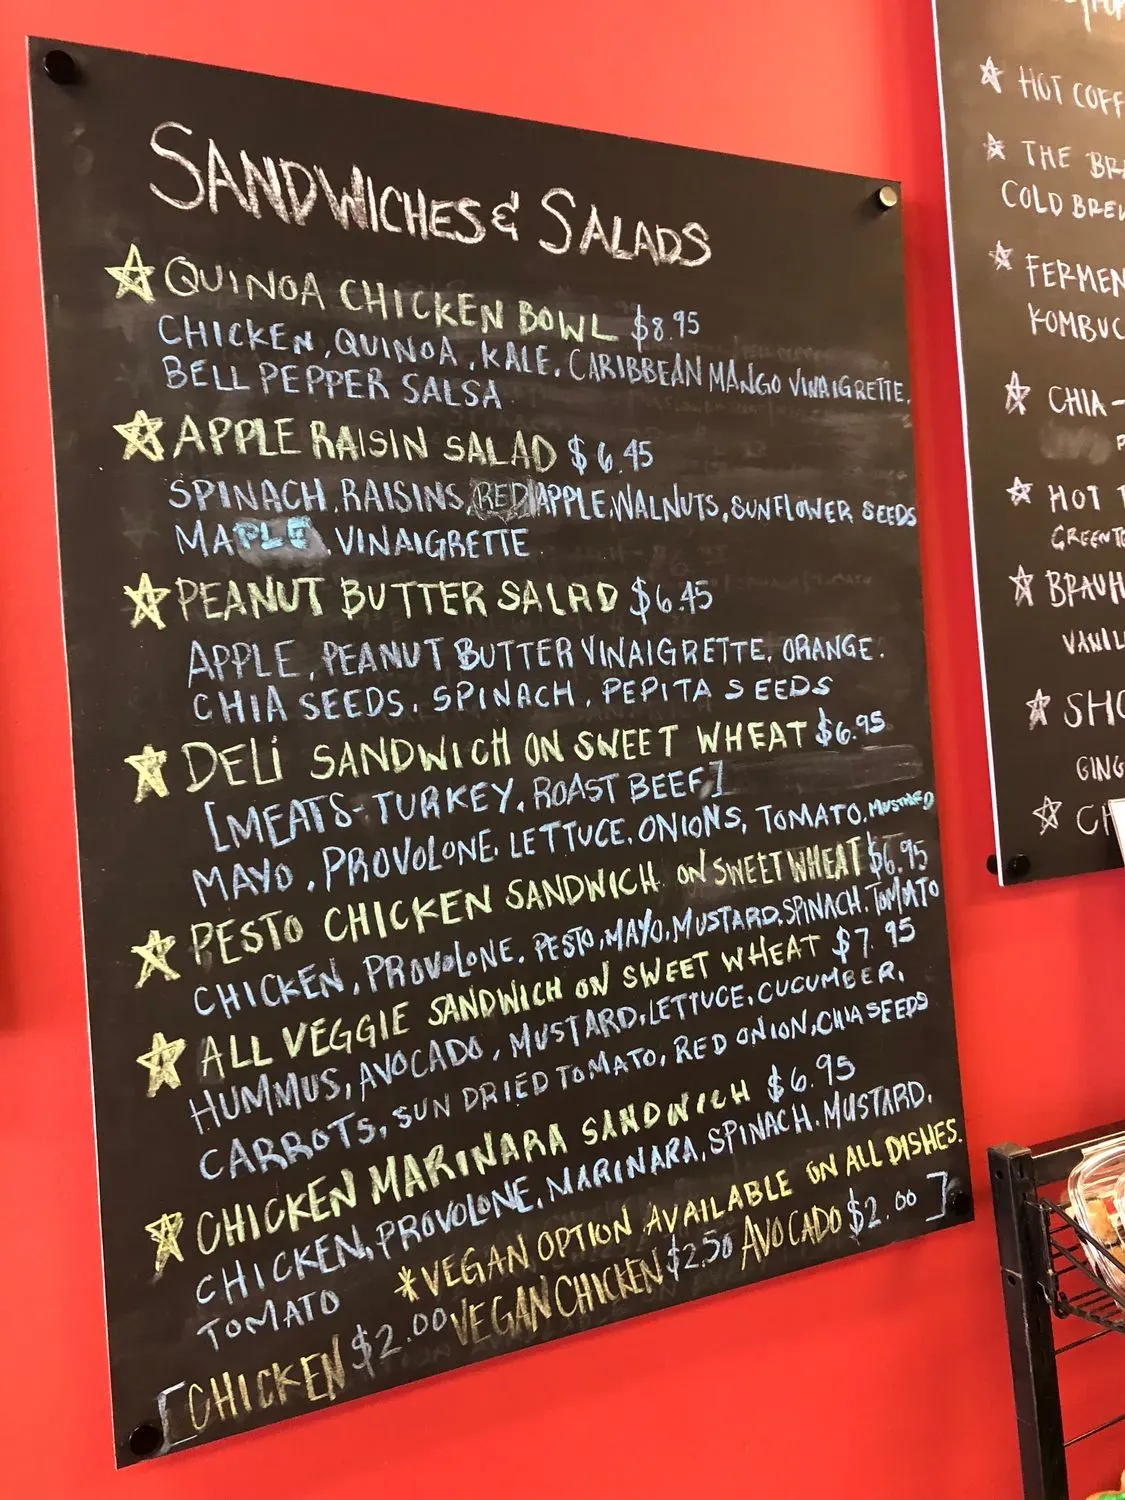 SANDWICHES & SALADS
QUINOA CHICKEN BOWL $8.95
CHICKEN, QUINOA, KALE, CARIBBEAN MANGO VINAIGRETTE,
BELL PEPPER SALSA
APPLE RAISIN SALAD $6.45
SPINACH, RAISINS, RED APPLE, WALNUTS, SUNFLOWER SEEDS
MAPLE, VINAIGRETTE
PEANUT BUTTER SALAD $6.45
APPLE, PEANUT BUTTER VINAIGRETTE, ORANGE,
CHIA SEEDS, SPINACH, PEPITA SEEDS
DELI SANDWICH ON SWEET WHEAT $6.95
[MEATS-TURKEY, ROAST BEEF]
MAYO, PROVOLONE, LETTUCE, ONIONS, TOMATO, MUSTARD
PESTO CHICKEN SANDWICH ON SWEET WHEAT $6.95
CHICKEN, PROVOLONE, PESTO, MAYO, MUSTARD, SPINACH, TOMATO
ALL VEGGIE SANDWICH ON SWEET WHEAT $7.95
HUMMUS, AVOCADO, MUSTARD, LETTUCE, CUCUMBER,
CARROTS, SUN DRIED TOMATO, RED ONION, CHIA SEEDS
CHICKEN MARINARA SANDWICH $6.95
CHICKEN, PROVOLONE, MARINARA, SPINACH, MUSTARD,
TOMATO
*VEGAN OPTION AVAILABLE ON ALL DISHES.
[CHICKEN $2.00 VEGAN CHICKEN $2.50 AVOCADO $2.00]
HOT COFF
THE BR
COLD BREW
FERMEN
KOMBUC
CHIA -
HOT T
GREEN TE
BRAUH
VANIL
SHO
GING
CH